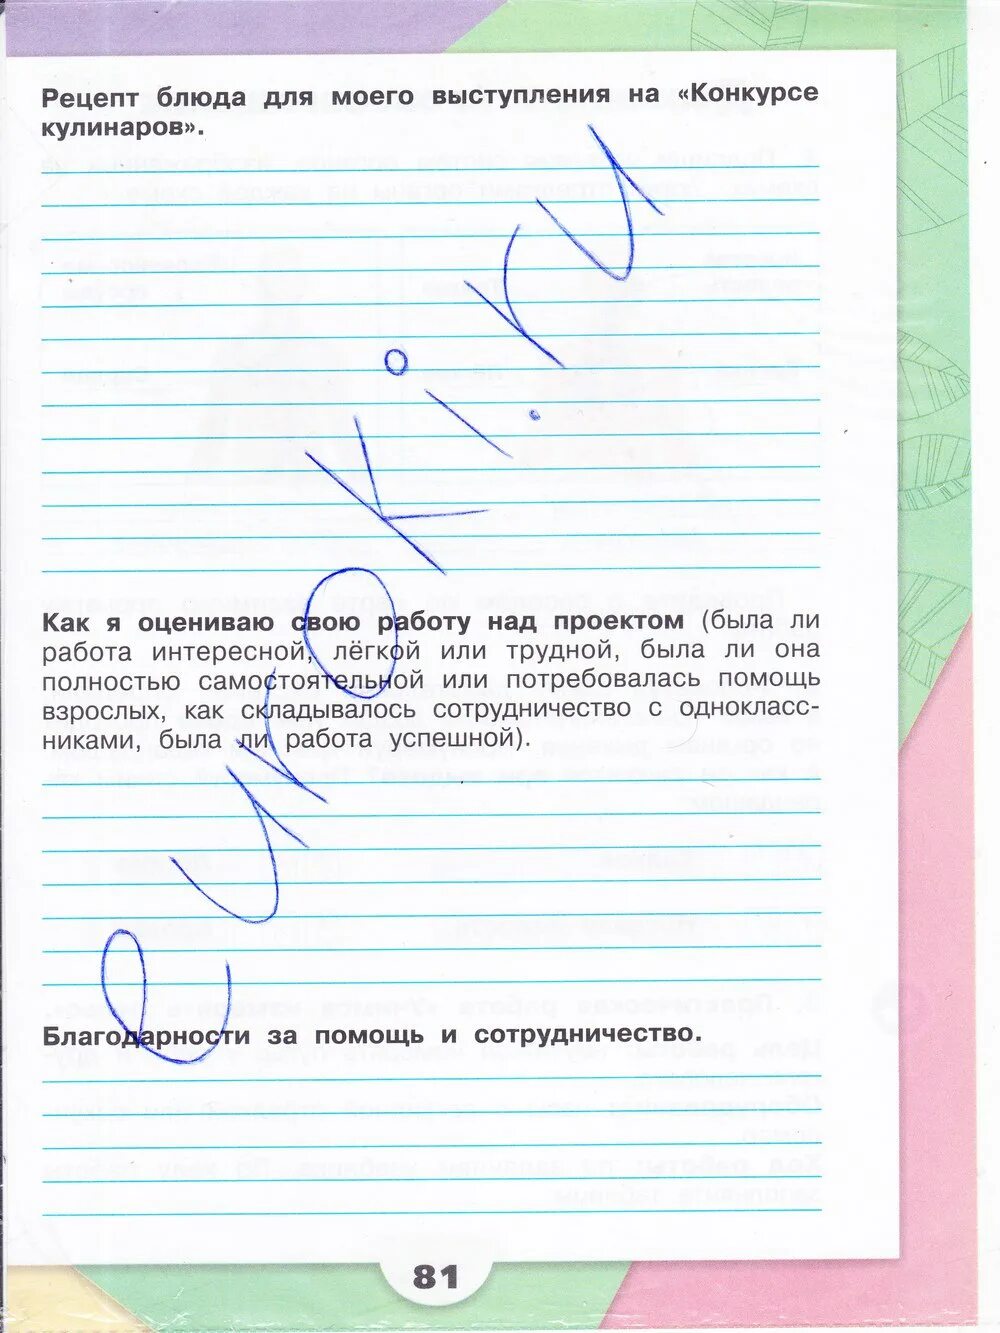 Рецепт блюда для моего выступления на «Конкурсе
кулинаров».
euroki.ru
Как я оцениваю свою работу над проектом (была ли
работа интересной, лёгкой или трудной, была ли она
полностью самостоятельной или потребовалась помощь
взрослых, как складывалось сотрудничество с однокласс-
никами, была ли работа успешной).
Благодарности за помощь и сотрудничество.
81